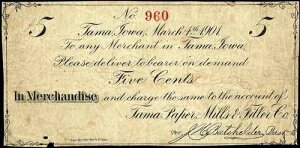 No. 960
Tama, Iowa, March 1st, 1901
5 To any Merchant in Tama, Iowa, 5
Please deliver to bearer on demand
Five Cents
In Merchandise and charge the same to the account of
Tama Paper Mills & Feller Co.